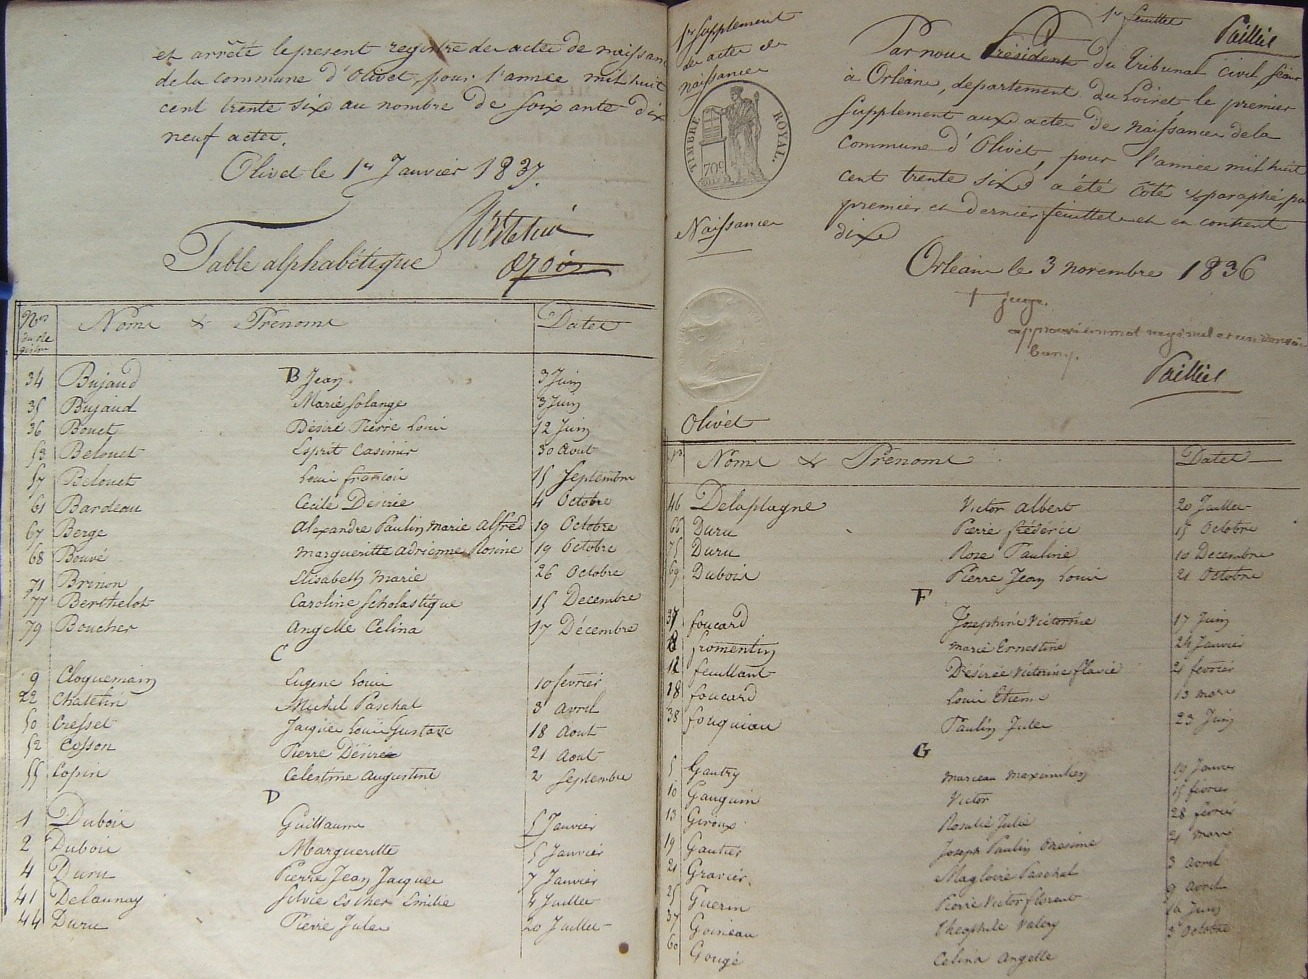 et arrêté le present registre des actes de naissan
de la commune d'Olivet pour l'année mil huit
cent trente six au nombre de soixante dix
neuf actes.
Olivet le 1er Janvier 1837.
Table alphabétique
Nos du re gistre Noms & Prenoms Dates
B
34 Bujaud Jean 3 Juin
35 Bujaud Marie Solange 3 Juin
36 Bouet Desiré Pierre Louis 12 Juin
53 Belouet Esprit Casimir 30 Aout
57 Belouet Louis françois 15 Septembre
61 Bardeau Cecile Desirée 4 Octobre
67 Berge Alexandre Paulin Marie Alfred 19 Octobre
68 Bouvé Margueritte Adrienne Rosine 19 Octobre
71 Brinon Elisabeth Marie 26 Octobre
77 Berthelot Caroline Scholastique 15 Decembre
79 Boucher Angelle Celina 17 Décembre
C
9 Cloquemain Eugene Louis 10 fevrier
22 Chatelin Michel Paschal 3 avril
50 Cresset Jacques Louis Gustave 18 Aout
52 Cosson Pierre Désirée 21 Aout
55 Copin Celestine Augustine 2 Septembre
D
1 Dubois Guillaume 5 Janvier
2 Dubois Margueritte 5 Janvier
4 Duru Pierre Jean Jacques 7 Janvier
41 Delaunay Silvie Esther Emilie 4 Juillet
44 Duru Pierre Jules 20 Juillet
1er feuillet
Paillet
1er Supplement
des actes de
naissances
TIMBRE ROYAL.
709
Naissances
Par nous Président du Tribunal civil séant
à Orléans, departement du Loiret, le premier
Supplement aux actes de Naissances de la
Commune d'Olivet, pour l'année mil huit
cent trente six a été coté & paraphé par
premier et dernier feuillet et en contient
dix
Orleans le 3 novembre 1836
1 juge.
Paillet
Olivet
Noms & Prenoms Dates
46 Delaplagne Victor Albert 20 Juillet
66 Duru Pierre fréderic 15 Octobre
75 Duru Roze Pauline 10 Decembre
69 Dubois Pierre Jean Louis 21 Octobre
F
37 foucard Josephine Victorine 17 Juin
8 fromentin Marie Ernestine 24 Janvier
12 feuillant Désirée Victorine flavie 21 fevrier
18 foucard Louis Etienne 13 mars
38 fouquiau Paulin Jules 23 Juin
G
5 Gautry Marceau Maximilien 19 Janvier
10 Gauguin Victor 15 fevrier
13 Giroux Rosalie Julie 28 fevrier
19 Gautier Joseph Paulin Onesime 21 mars
21 Gravier Magloire Paschal 3 avril
25 Guerin Pierre Victor florent 9 avril
37 Goineau Théophile Valery 10 Juin
60 Gougé Celina Angelle 3 Octobre